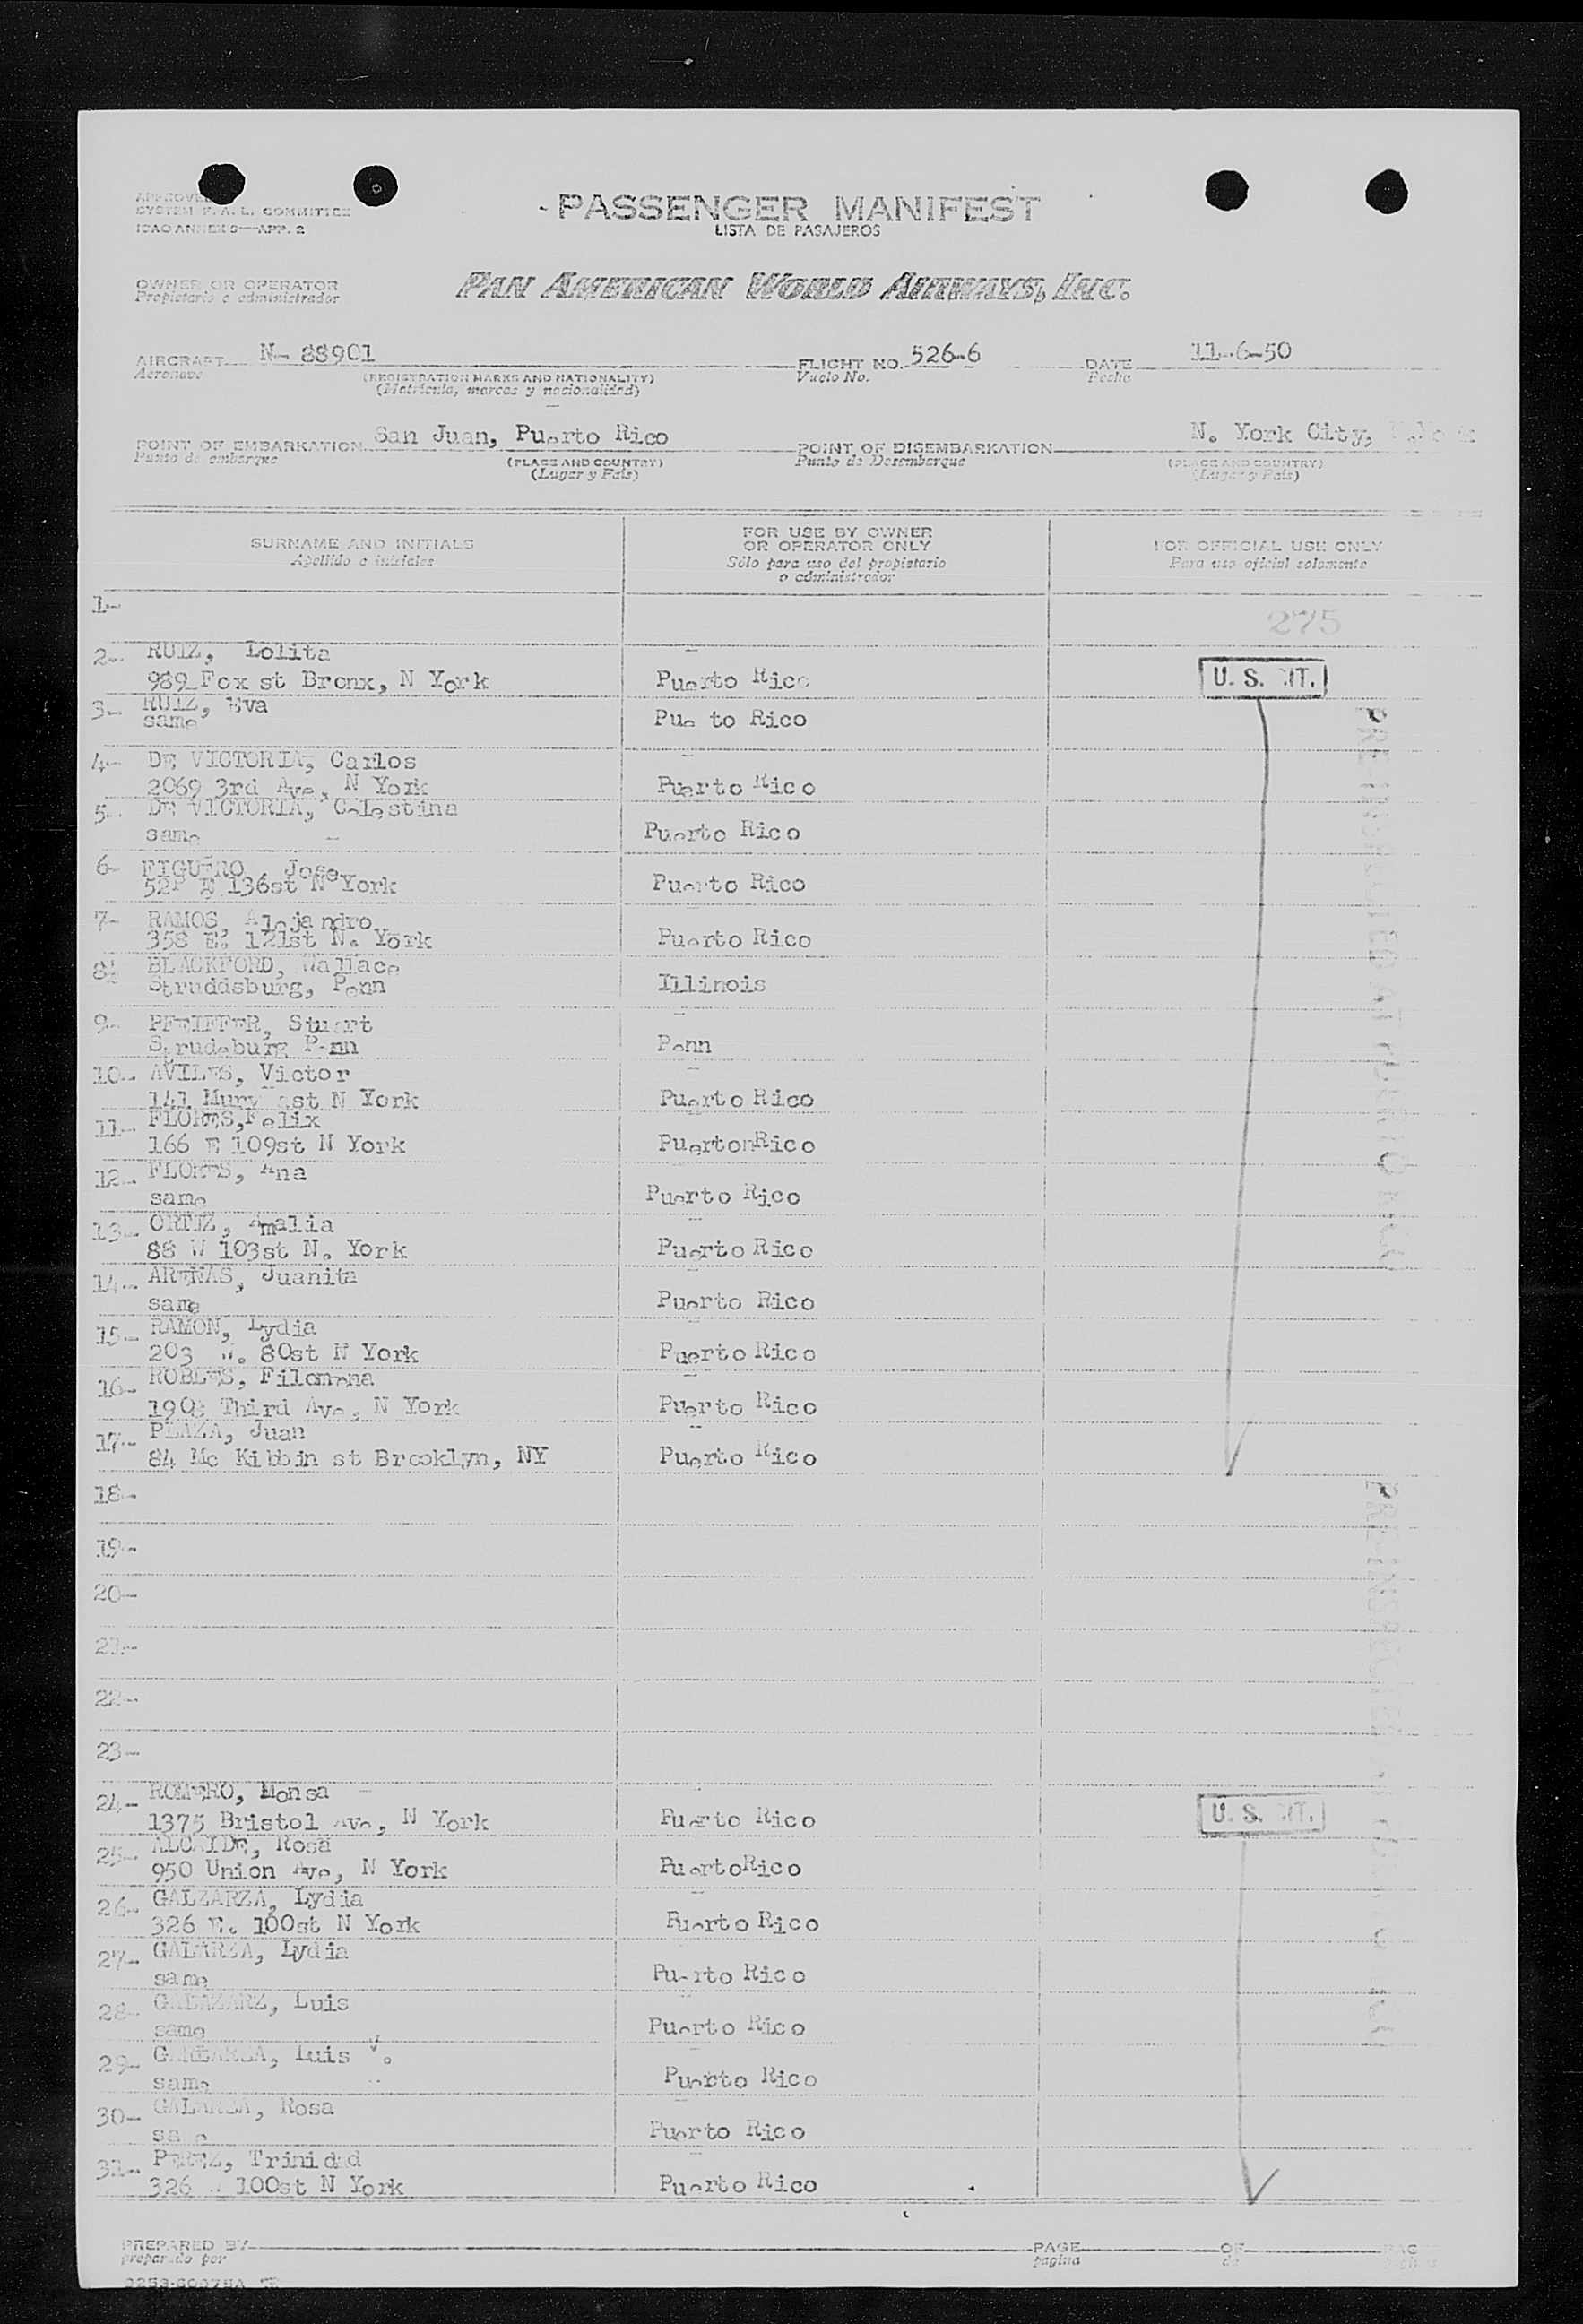 SYSTEM F. A. L. COMMITTEE
ICAO ANNEX 9—APP. 2
PASSENGER MANIFEST
LISTA DE PASAJEROS
OWNER OR OPERATOR
Propietario o administrador
PAN AMERICAN WORLD AIRWAYS, INC.
AIRCRAFT N- 88901 FLIGHT NO. 526-6 DATE 11-6-50
Aeronave (REGISTRATION MARKS AND NATIONALITY) Vuelo No. Fecha
(Matrícula, marcas y nacionalidad)
POINT OF EMBARKATION San Juan, Puerto Rico POINT OF DISEMBARKATION N. York City,
Punto de embarque (PLACE AND COUNTRY) Punto de Desembarque (PLACE AND COUNTRY)
(Lugar y País) (Lugar y País)
SURNAME AND INITIALS FOR USE BY OWNER OR OPERATOR ONLY FOR OFFICIAL USE ONLY
Apellido e iniciales Sólo para uso del propietario o administrador Para uso oficial solamente
1-
275
2- RUIZ, Lolita
989 Fox st Bronx, N York Puerto Rico U. S. CIT.
3- RUIZ, Eva
same Pue to Rico
4- DE VICTORIA, Carlos
2069 3rd Ave, N York Puerto Rico
5- DE VICTORIA, Celestina
same Puerto Rico
6- FIGUERO, Jose
E 136st N York Puerto Rico
7- RAMOS, Alejandro
358 E. 121st N. York Puerto Rico
8- BLACKFORD, Wallace
Struddsburg, Penn Illinois
9- PFEIFFER, Stuart
Strudsburg Penn Penn
10- AVILES, Victor
141 st N York Puerto Rico
11- FLORES,Felix
166 E 109st N York PuertonRico
12- FLORES, Ana
same Puerto Rico
13- ORTIZ, Amalia
88 W 103st N. York Puerto Rico
14- ARENAS, Juanita
same Puerto Rico
15- RAMON, Lydia
203 W. 80st N York Puerto Rico
16- ROBLES, Filomena
Third Ave, N York Puerto Rico
17- PLAZA, Juan
84 Mc Kibbin st Brooklyn, NY Puerto Rico
18-
19-
20-
21-
22-
23-
24- ROMERO, Monsa
1375 Bristol Ave, N York Puerto Rico U. S. CIT.
25- ALCAIDE, Rosa
950 Union Ave, N York PuertoRico
26- GALZARZA, Lydia
326 E. 100st N York Puerto Rico
27- GALARZA, Lydia
same Puerto Rico
28- Luis
same Puerto Rico
29- Luis V.
same Puerto Rico
30- GALARZA, Rosa
same Puerto Rico
31- PEREZ, Trinidad
326 100st N York Puerto Rico
PRE-INSPECTED AT PUERTO RICO
PRE-INSPECTED AT PUERTO RICO
PREPARED BY PAGE OF PAGES
preparado por página de páginas